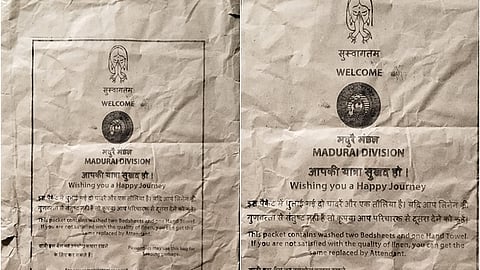 सुस्वागतम
WELCOME
मदुरै मंडल
MADURAI DIVISION
आपकी यात्रा सुखद हो !
Wishing you a Happy Journey
इस पैकेट में धुलाई गई दो चादरें और एक तौलिया है। यदि आप लिनेन की
गुणवत्ता से संतुष्ट नहीं हैं तो कृपया आप परिचारक से दूसरा देने को कहें।
This packet contains washed two Bedsheets and one Hand Towel.
If you are not satisfied with the quality of linen, you can get the
same replaced by Attendant.
Passengers may use this bag for
keeping garbage.
सुस्वागतम
WELCOME
मदुरै मंडल
MADURAI DIVISION
आपकी यात्रा सुखद हो !
Wishing you a Happy Journey
इस पैकेट में धुलाई गई दो चादरें और एक तौलिया है। यदि आप लिनेन की
गुणवत्ता से संतुष्ट नहीं हैं तो कृपया आप परिचारक से दूसरा देने को कहें।
This packet contains washed two Bedsheets and one Hand Towel.
If you are not satisfied with the quality of linen, you can get the
same replaced by Attendant.